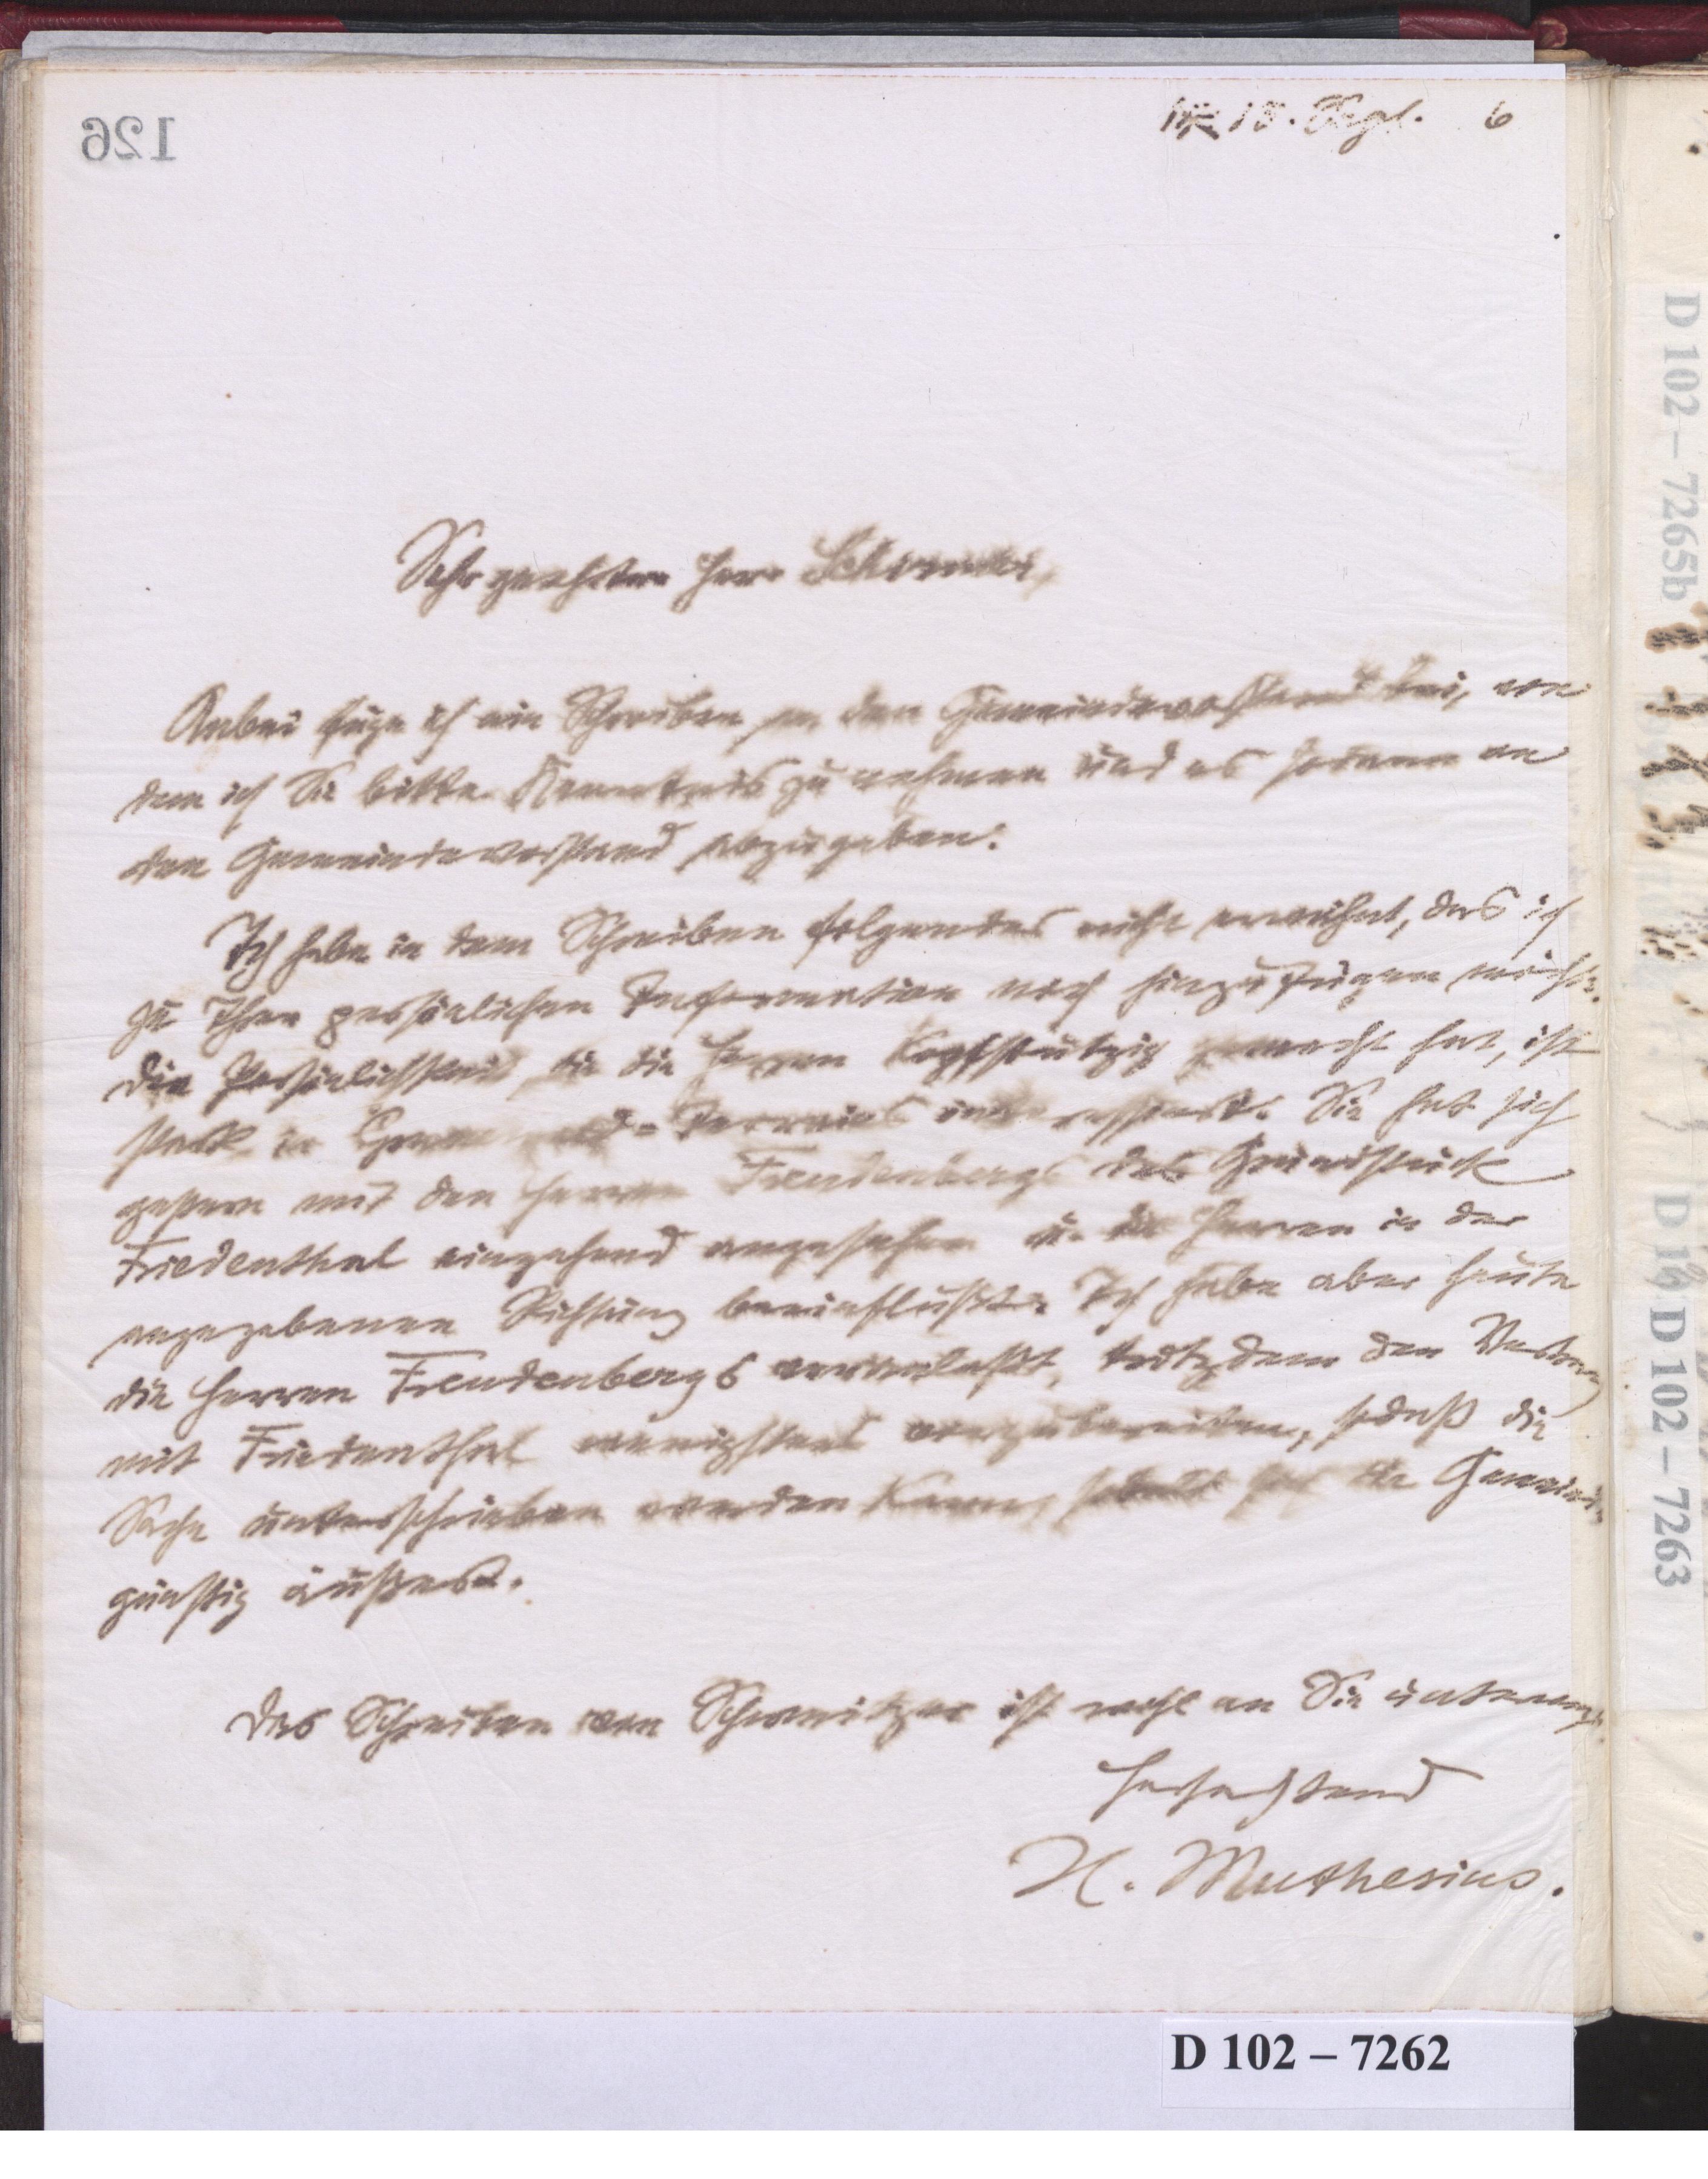 126
15. Sept. 6
Sehr geehrter Herr
Anbei füge ich ein Schreiben an den Gemeindevorstand bei, von
dem ich Sie bitte Kenntnis zu nehmen und es sodann an
den Gemeindevorstand abzugeben.
Ich habe in dem Schreiben folgendes nicht erwähnt, das ich
zu Ihrer persönlichen Information noch hinzufügen möchte.
Die Persönlichkeit, die die Herren kopfstutzig gemacht hat, ist
stark in Terrains interessiert. Sie hat sich
gestern mit den Herren Freudenbergs das Grundstück
Friedenthal eingehend angesehen u. die Herren in der
angegebenen Richtung beeinflußt. Ich habe aber heute
die Herren Freudenbergs veranlaßt, trotzdem den Vertrag
mit Friedenthal wenigstens vorzubereiten, sodaß die
Sache unterschrieben werden kann, sobald sich die Gemeinde
günstig äußert.
Das Schreiben von Schweitzer ist wohl an Sie
Hochachtend
H. Muthesius.
D 102 – 7262
D 102 – 7265b
D 102 – 7263